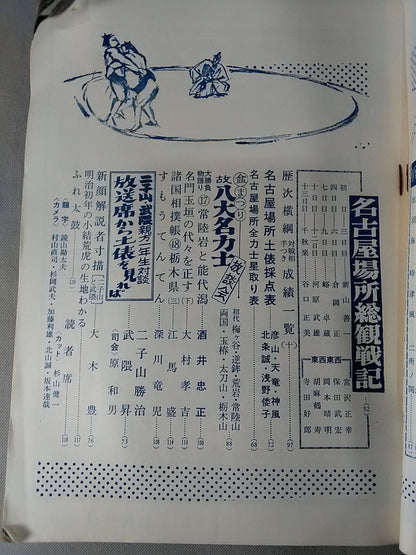 名古屋場所総観戦記
初日―三日目 新山善一
四日目―六日目 倉岡正
七日目―九日目 蛎原卓蔵
十日目―十二日目 河原武雄
十三日目―千秋楽 谷口正美
―東西東西―
宮沢正幸
保田武宏
岡本晴明
胡麻鶴寿
寺田好郎
歴次横綱対戦相手つき成績一覧(十)
名古屋場所土俵採点表 彦山・天竜・神風
名古屋場所全力士星取り表 北条誠・浅野倭子
盆まつり
故八大名力士放談会
初代梅ヶ谷・逆鉾・荒岩・常陸山
両国・玉椿・太刀山・栃木山
大勝負物語り⑰常陸岩と能代潟 酒井忠正
名門玉垣の代々を正す(下) 大村孝吉
諸国相撲帳㊽栃木県(三) 江馬盛
すもうてんてん 深川竜児
二子山 武隈 親方一年生対談
放送席から土俵を見れば
二子山勝治
武隈昇
〈司会〉原和男
新顔解説者寸描〔二子山と武隈〕 大木豊
明治初年の小結荒虎の生地わかる
ふれ太鼓 読者席
〈題字〉鏡山勘太夫 〈カット〉杉山健一
〈カメラ〉村山直司・杉岡武夫・加藤利雄・北山誠・坂本達哉